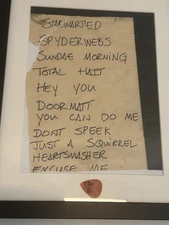 STARWARPED
SPYDERWEBS
SUNDAE MORNING
TOTAL HATT
HEY YOU
DOORMATT
YOU CAN DO ME
DONT SPEEK
JUST A SQUIRREL
HEARTSMASHER
EXCUSE ME